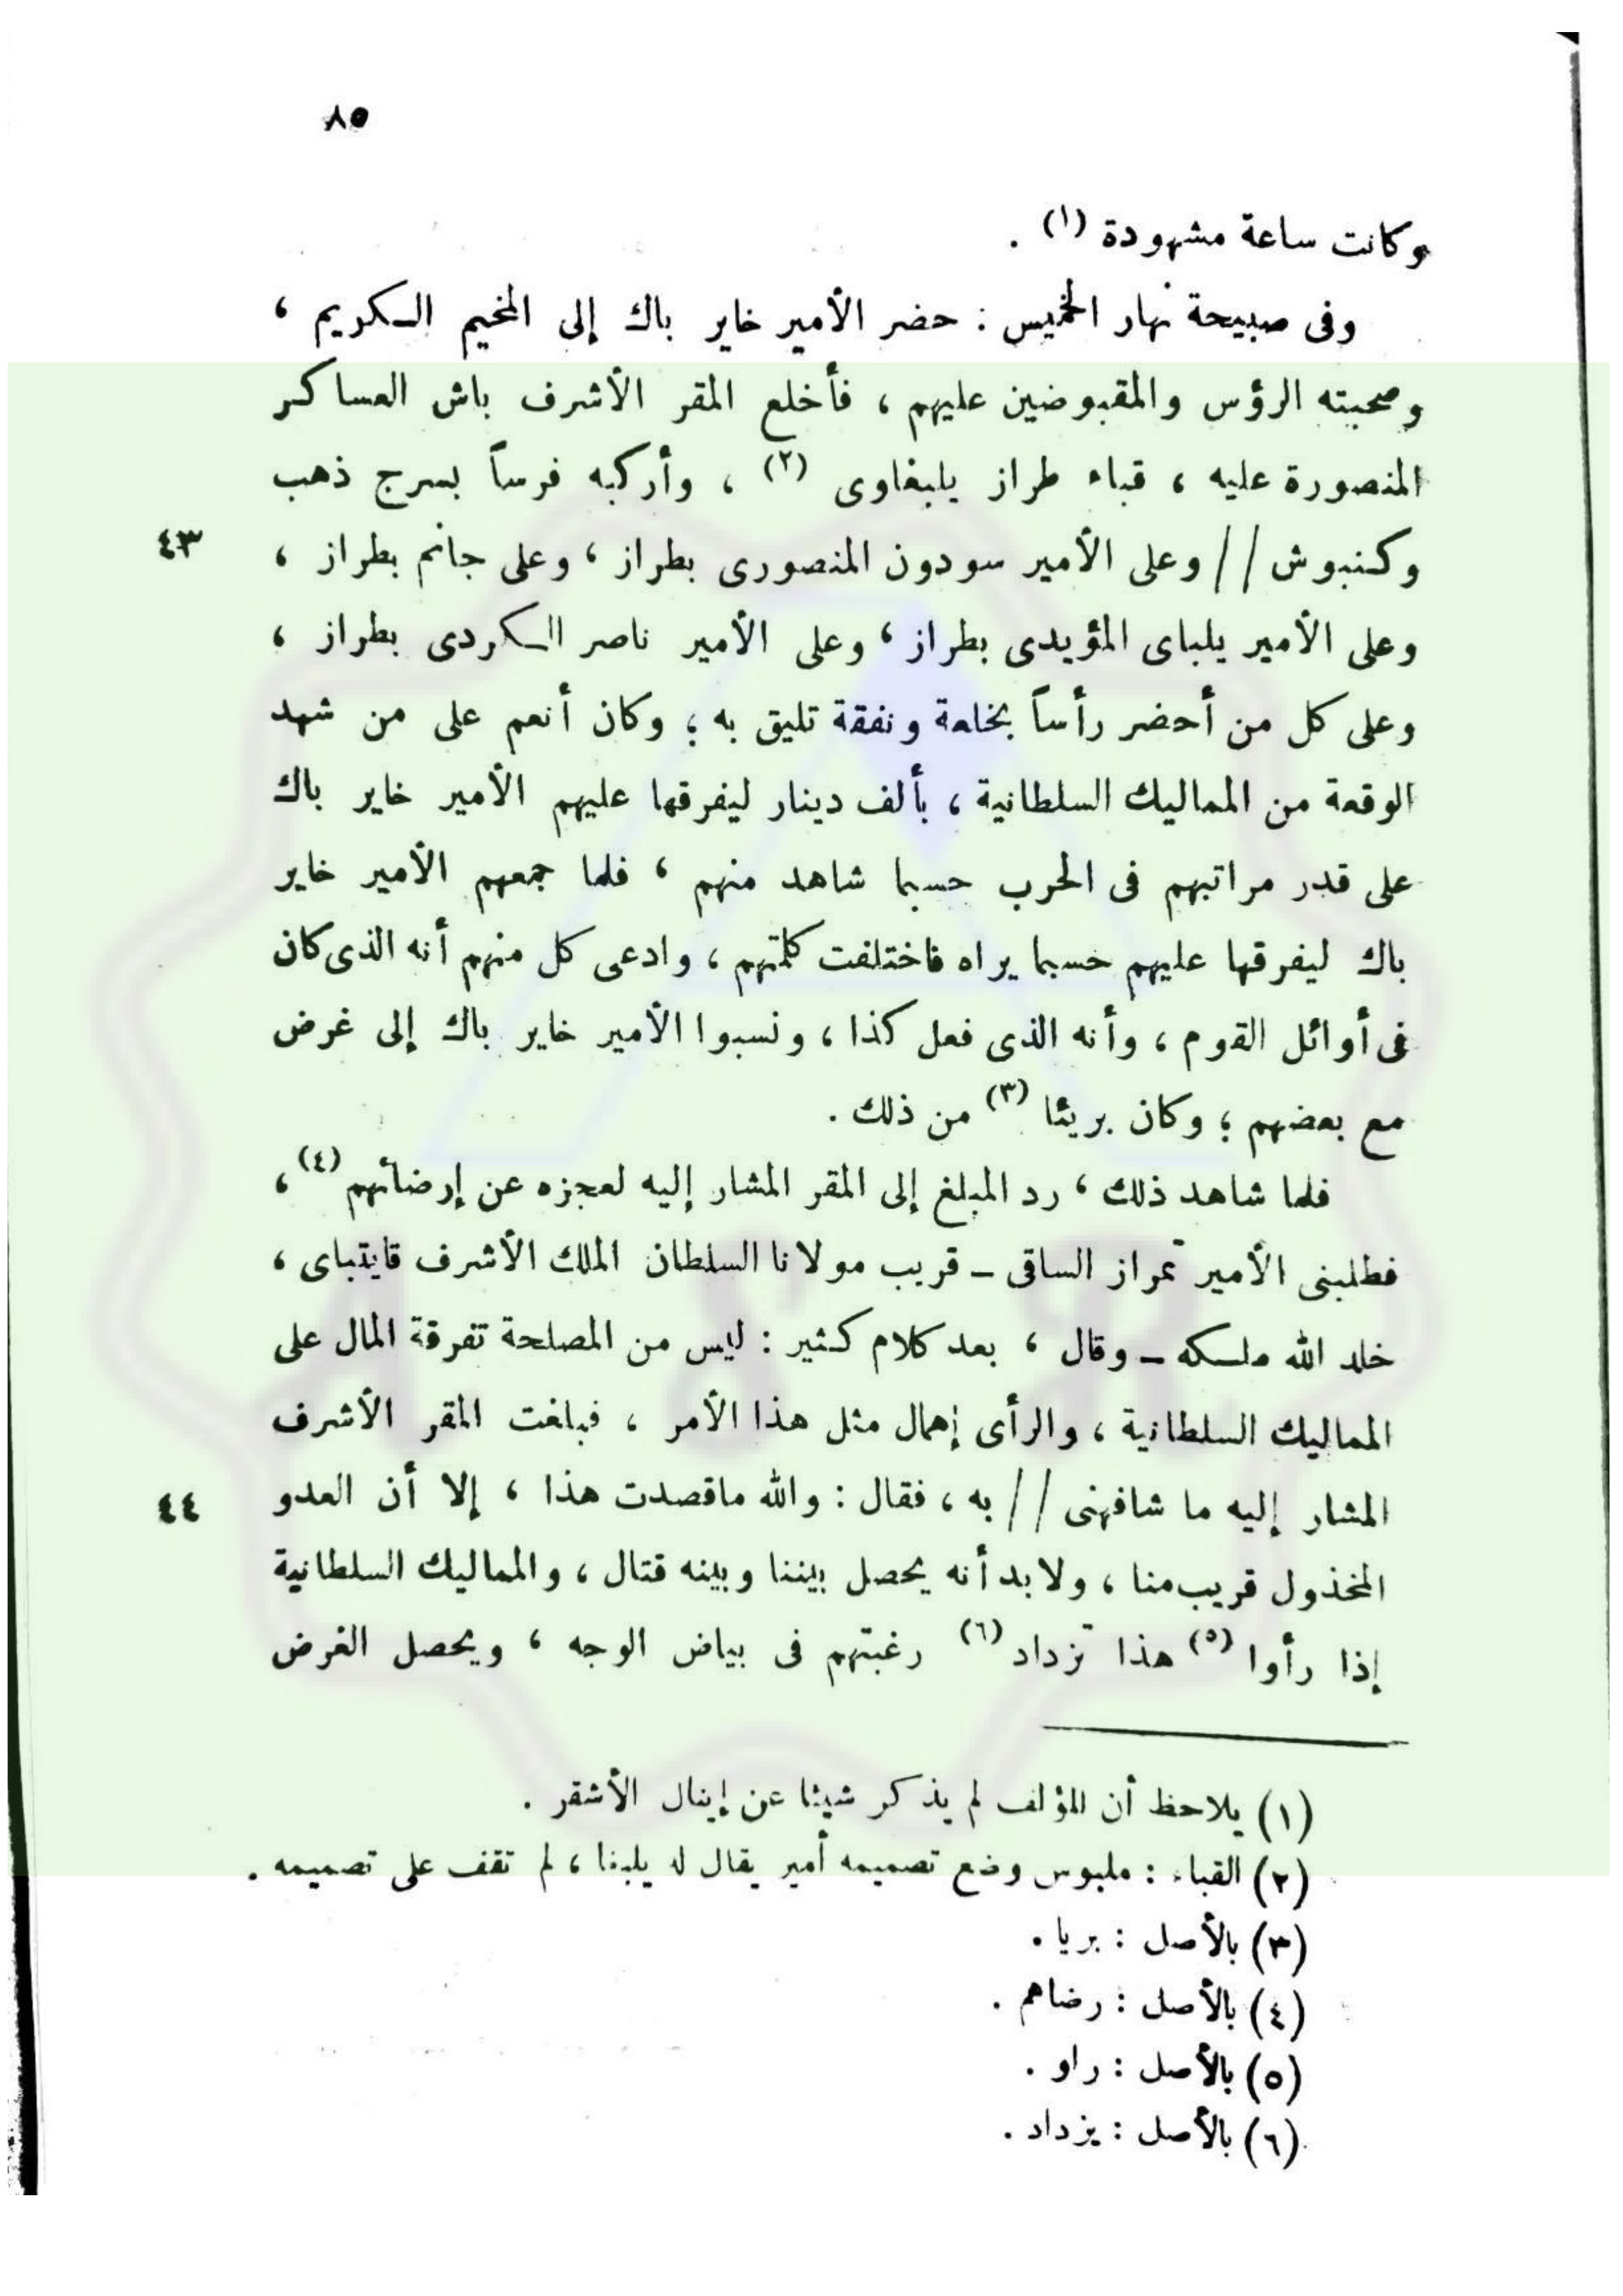 ٨٥
وكانت ساعة مشهودة (١) .
وفى صبيحة نهار الخميس : حضر الأمير خاير باك إلى المخيم الكريم ،
وصحبته الرؤس والمقبوضين عليهم ، فأخلع المقر الأشرف باش العساكر
المنصورة عليه ، قباء طراز يلبغاوى (٢) ، وأركبه فرساً بسرج ذهب
وكنبوش // وعلى الأمير سودون المنصورى بطراز ، وعلى جانم بطراز ، ٤٣
وعلى الأمير يلباى المؤيدى بطراز ، وعلى الأمير ناصر الكردى بطراز ،
وعلى كل من أحضر رأساً بخلعة ونفقة تليق به ؛ وكان أنعم على من شهد
الوقعة من المماليك السلطانية ، بألف دينار ليفرقها عليهم الأمير خاير باك
على قدر مراتبهم فى الحرب حسبما شاهد منهم ، فلما جمعهم الأمير خاير
باك ليفرقها عليهم حسبما يراه فاختلفت كلمتهم ، وادعى كل منهم أنه الذى كان
فى أوائل القوم ، وأنه الذى فعل كذا ، ونسبوا الأمير خاير باك إلى غرض
مع بعضهم ؛ وكان بريئا (٣) من ذلك .
فلما شاهد ذلك ، رد المبلغ إلى المقر المشار إليه لعجزه عن إرضائهم (٤) ،
فطلبنى الأمير تمراز الساقى – قريب مولانا السلطان الملك الأشرف قايتباى ،
خلد الله ملكه – وقال ، بعد كلام كثير : ليس من المصلحة تفرقة المال على
المماليك السلطانية ، والرأى إهمال مثل هذا الأمر ، فبلغت المقر الأشرف
المشار إليه ما شافهنى // به ، فقال : والله ماقصدت هذا ، إلا أن العدو ٤٤
المخذول قريب منا ، ولابد أنه يحصل بيننا وبينه قتال ، والمماليك السلطانية
إذا رأوا (٥) هذا تزداد (٦) رغبتهم فى بياض الوجه ، ويحصل الغرض
(١) يلاحظ أن المؤلف لم يذكر شيئا عن إينال الأشقر .
(٢) القباء : ملبوس وضع تصميمه أمير يقال له يلبغا ، لم تقف على تصميمه .
(٣) بالأصل : بريا .
(٤) بالأصل : رضاهم .
(٥) بالأصل : راو .
(٦) بالأصل : يزداد .